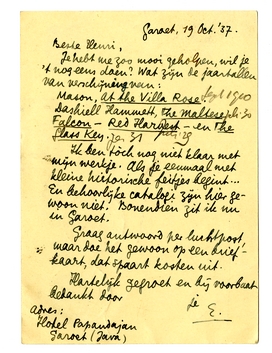 Garoet, 19 Oct. '37.
Beste Henri,
Je hebt me zoo mooi geholpen, wil je
't nog eens doen? Wat zijn de jaartallen
van verschijning van:
Mason, At the Villa Rose; Sept 1910
Dashiell Hammett, The Maltese Feb. 30
Falcon – Red Harvest – en The
Glass Key. Jan 31 July. 29
Ik ben tòch nog niet klaar met
mijn werkje. Als je eenmaal met
kleine historische feitjes begint...
En behoorlijke catalogi zijn hier ge-
woon niet! Bovendien zit ik nu
in Garoet.
Graag antwoord per luchtpost
maar doe het gewoon op een brief-
kaart, dat spaart kosten uit.
Hartelijk gegroet en bij voorbaat
bedankt door
je
E.
Adres:
Hotel Papandajan
Garoet (Java)